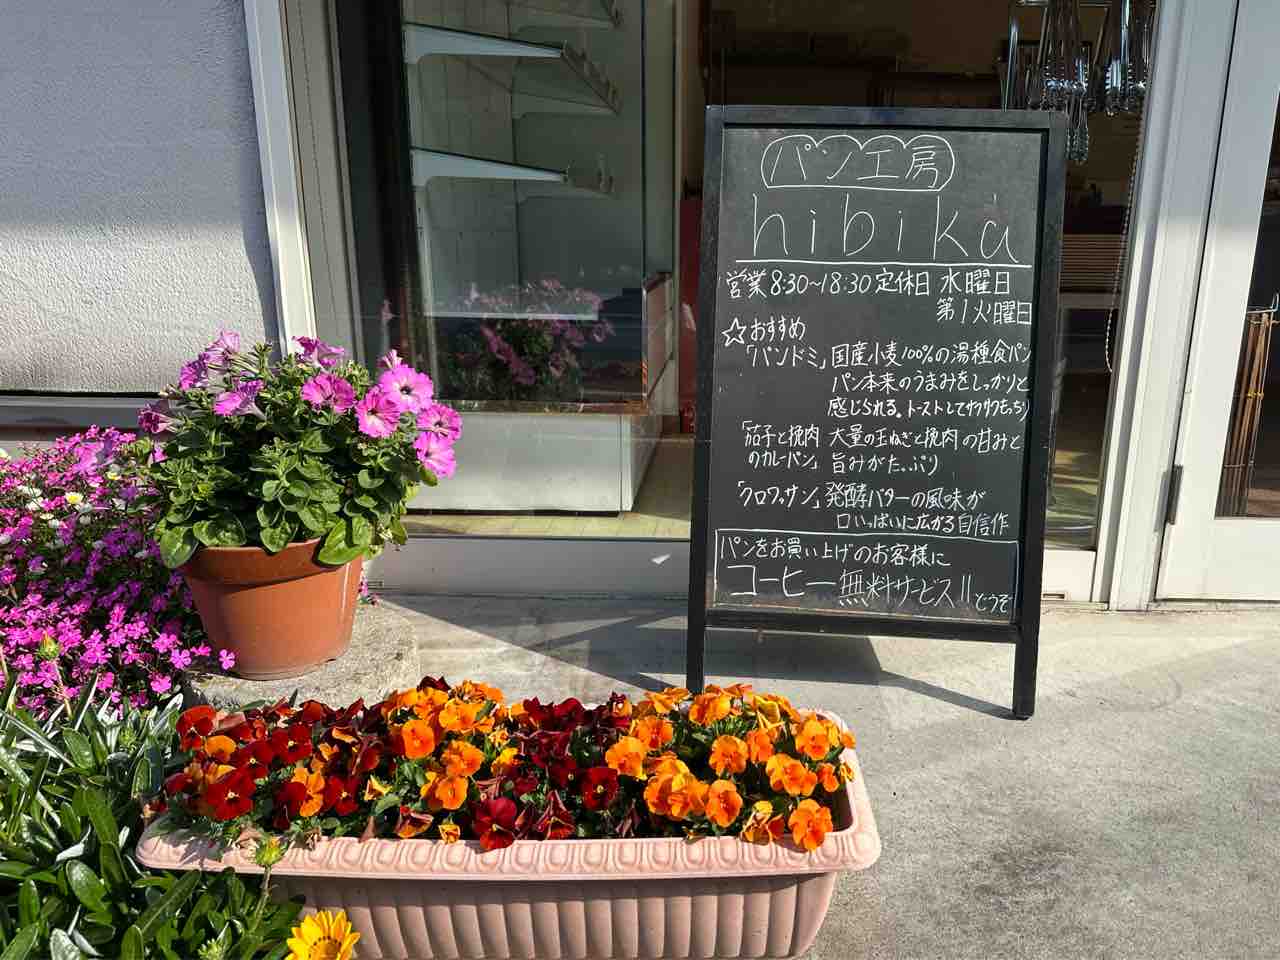 パン工房
hibika
営業8:30~18:30定休日 水曜日
第1火曜日
☆おすすめ
「パンドミ」国産小麦100%の湯種食パン
パン本来のうまみをしっかりと
感じられる。トーストしてサクサクもっちり
「茄子と挽肉 大量の玉ねぎと挽肉の甘みと
のカレーパン」旨みがたっぷり
「クロワッサン」発酵バターの風味が
口いっぱいに広がる自信作
パンをお買い上げのお客様に
コーヒー無料サービス!! どうぞ